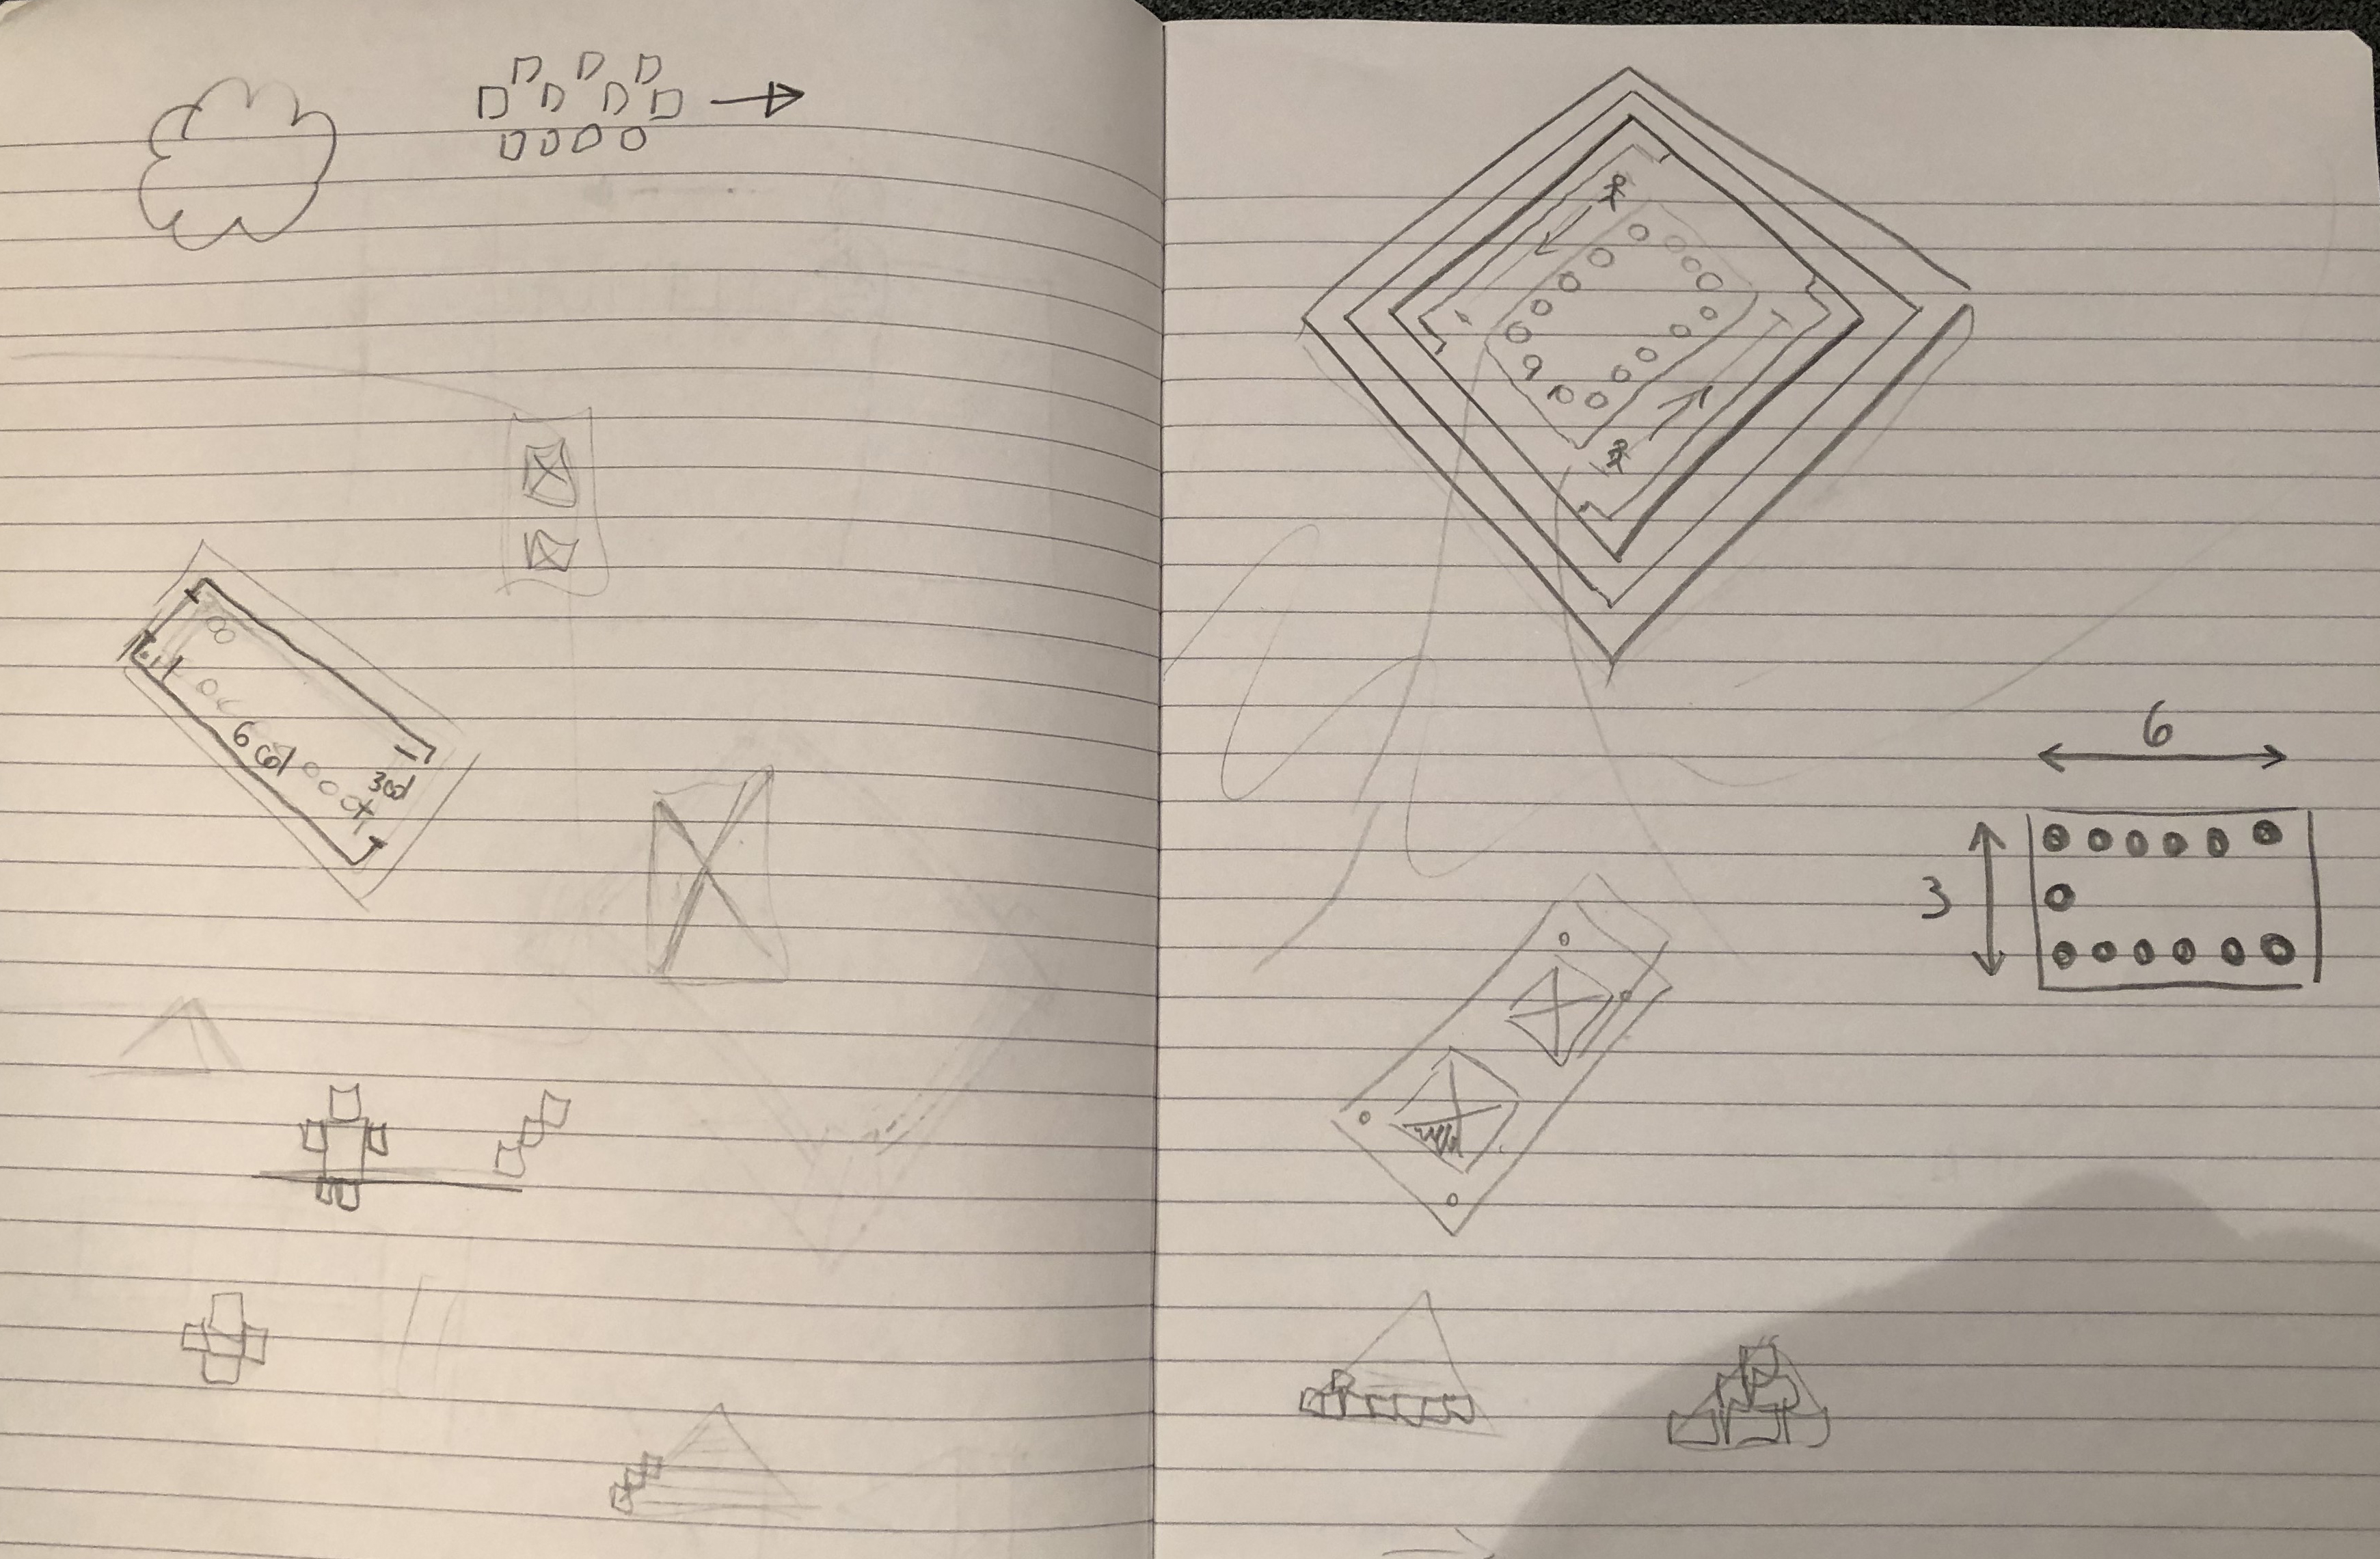 6 col
3 col
6
3